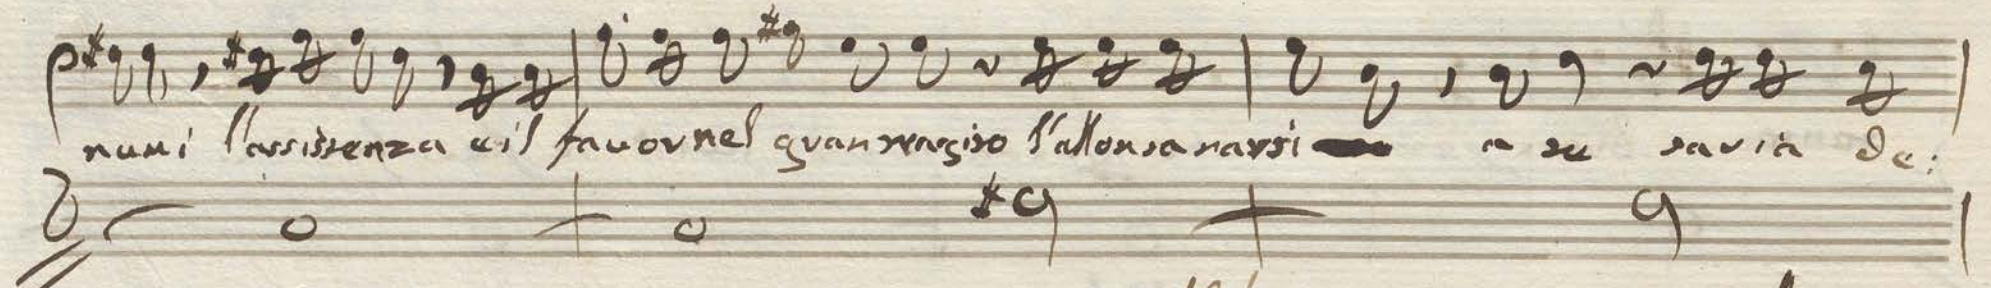 numi l'assistenza e il favor nel gran tragitto l'allontanarsi a te saria de: